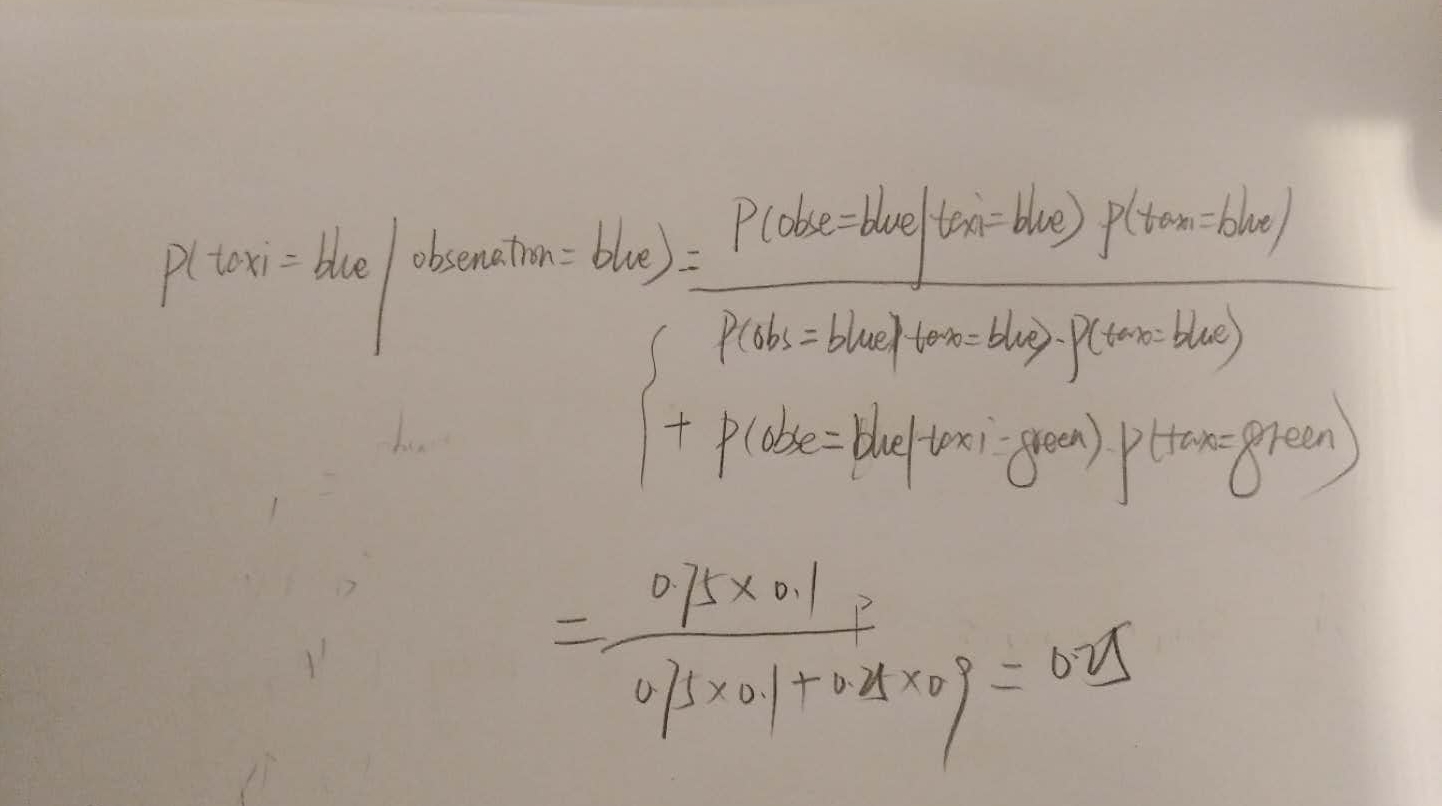 P(taxi = blue | observation = blue) = P(obse=blue|taxi=blue) p(taxi=blue)
P(obs = blue|taxi=blue)·p(taxi=blue)
+ p(obse=blue|taxi=green)·p(taxi=green)
= 0.75 × 0.1
0.75 × 0.1 + 0.25 × 0.9 = 0.25